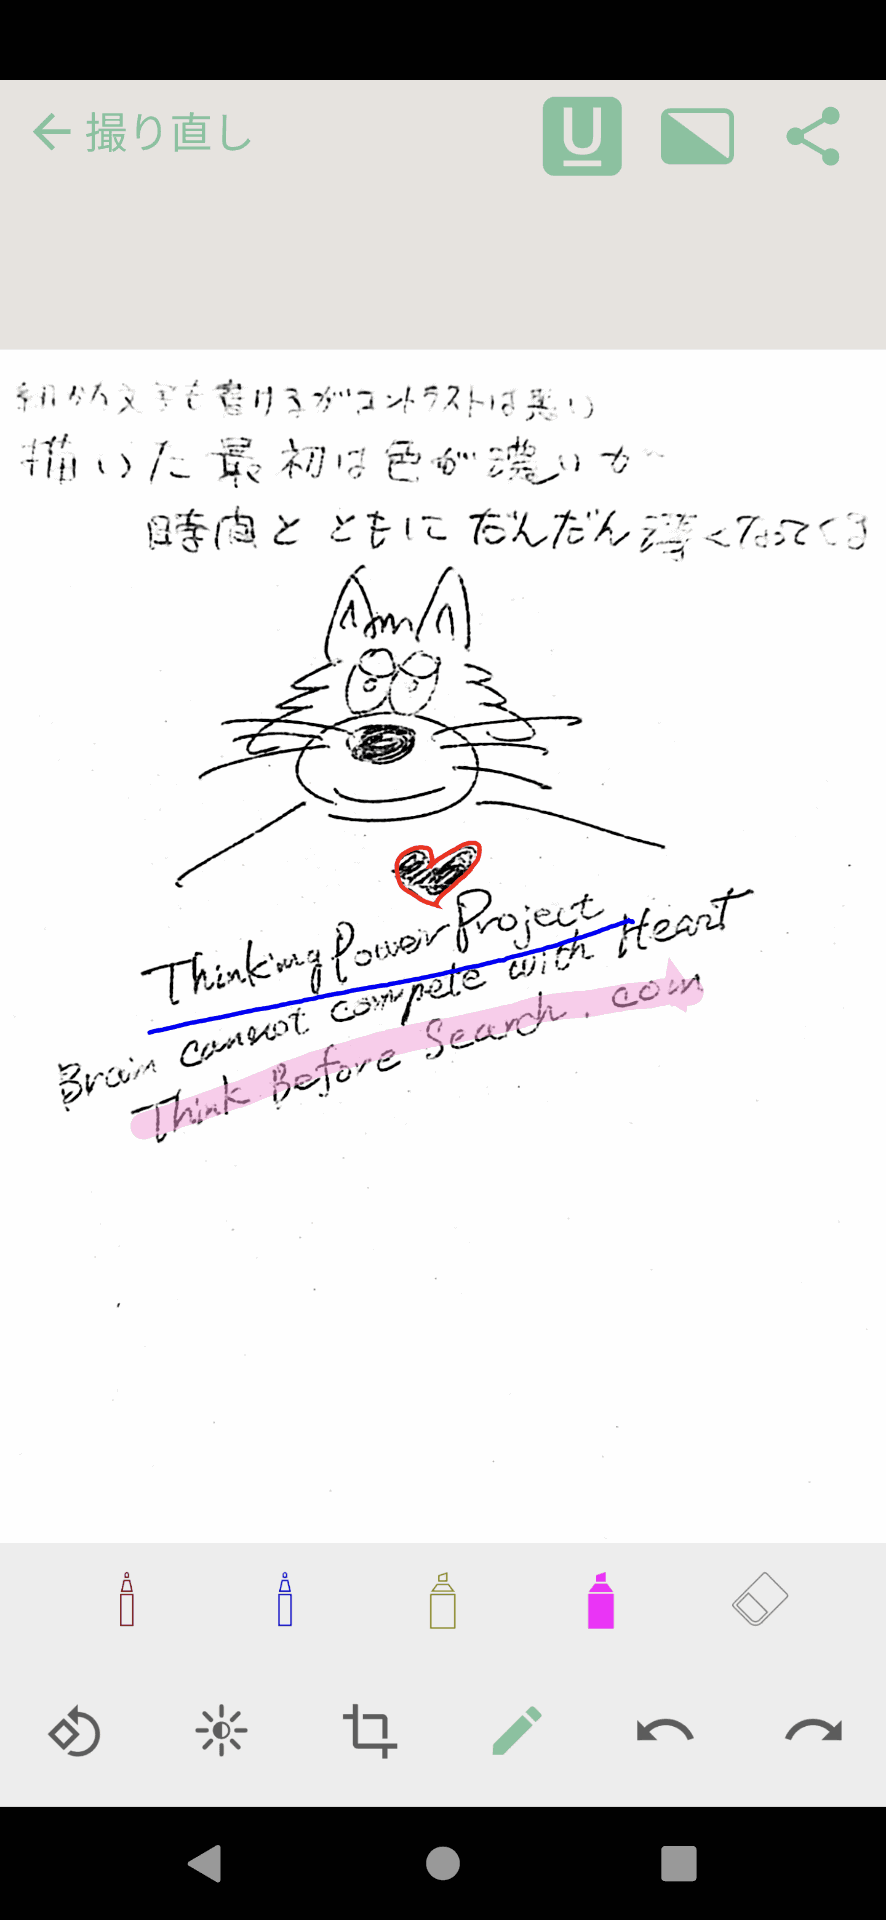 撮り直し
U
細かい文字も書けるがコントラストは悪い
描いた最初は色が濃いが
時間とともにだんだん薄くなってくる
Thinking Power Project
Brain cannot compete with Heart
Think Before Search.com